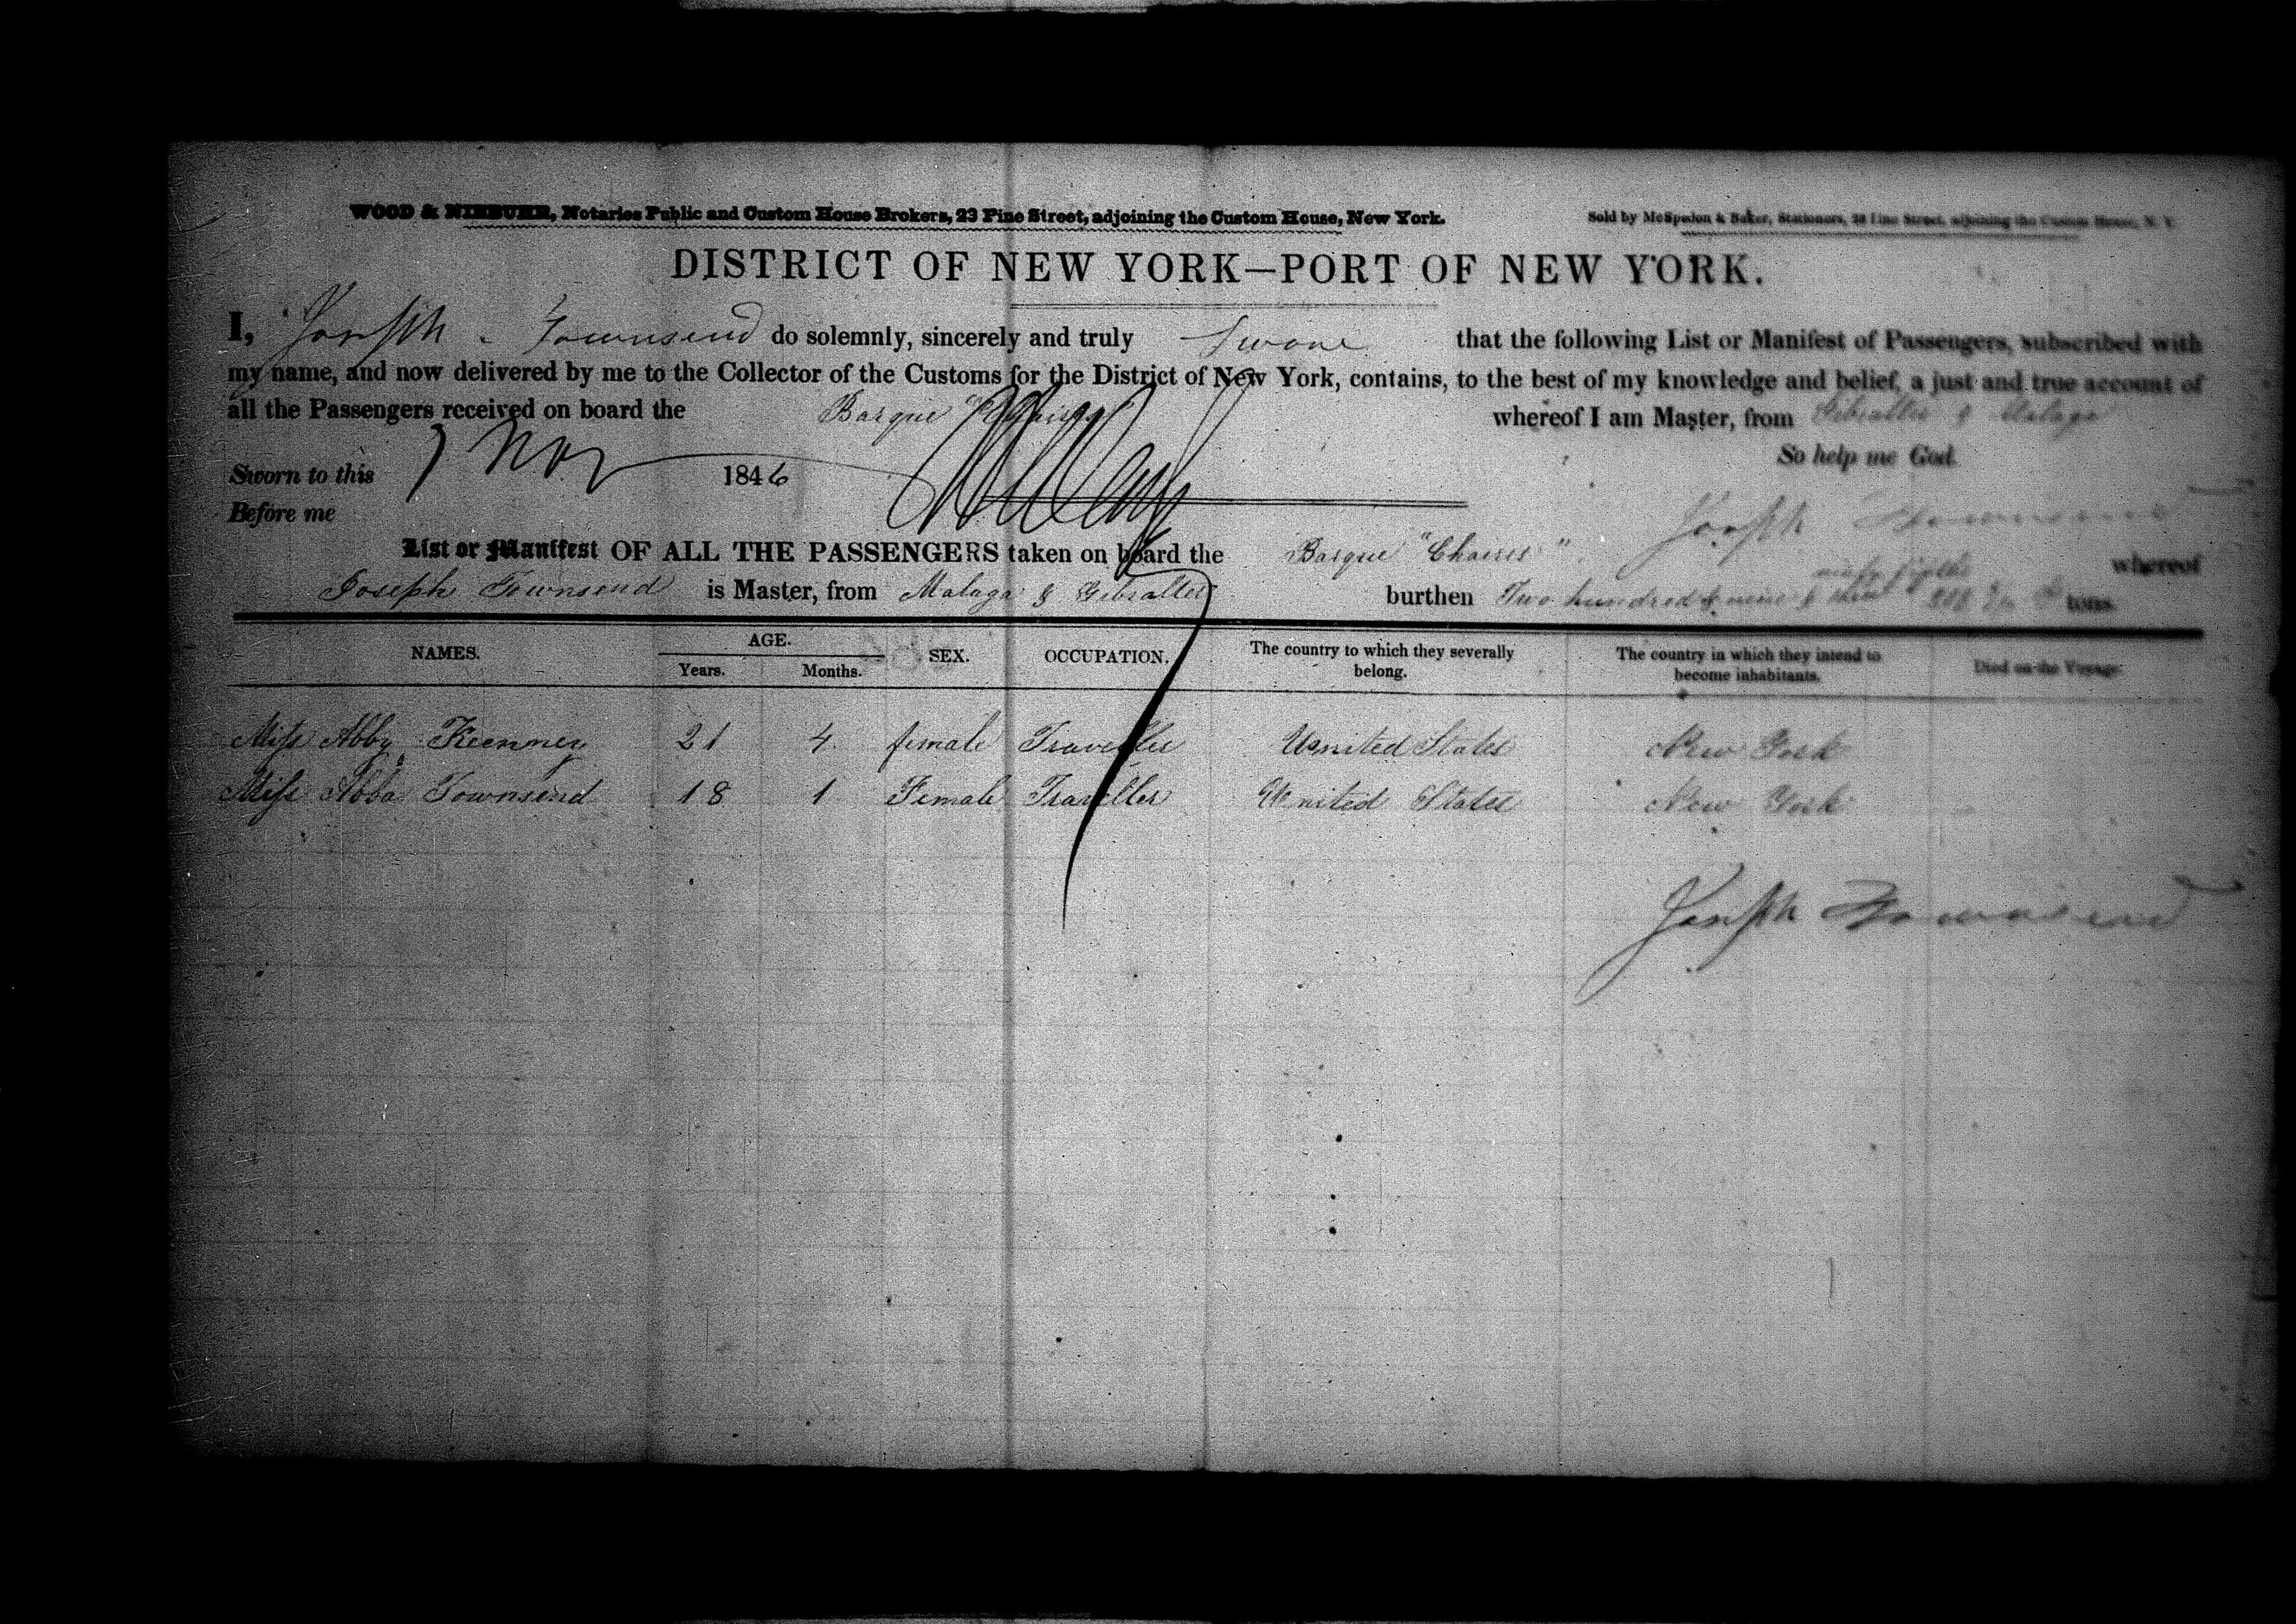 WOOD & NIEBUHR, Notaries Public and Custom House Brokers, 23 Pine Street, adjoining the Custom House, New York.
Sold by McSpedon & Baker, Stationers, Pine Street, adjoining the Custom House, N. Y.
DISTRICT OF NEW YORK—PORT OF NEW YORK.
I, Joseph Townsend do solemnly, sincerely and truly Swore that the following List or Manifest of Passengers, subscribed with
my name, and now delivered by me to the Collector of the Customs for the District of New York, contains, to the best of my knowledge and belief, a just and true account of
all the Passengers received on board the Barque whereof I am Master, from Gibralter & Malaga
So help me God.
Sworn to this 7 Nov 1846
Before me
Joseph Townsend
List or Manifest OF ALL THE PASSENGERS taken on board the Barque "Chaires" whereof
Joseph Townsend is Master, from Malaga & Gibralter burthen Two hundred & nine & tons.
NAMES. AGE. SEX. OCCUPATION. The country to which they severally belong. The country in which they intend to become inhabitants. Died on the Voyage.
Years. Months.
Miss Abby Keenney 21 4 female Traveller United States New York
Miss Abba Townsend 18 1 Female Traveller United States New York
Joseph Townsend